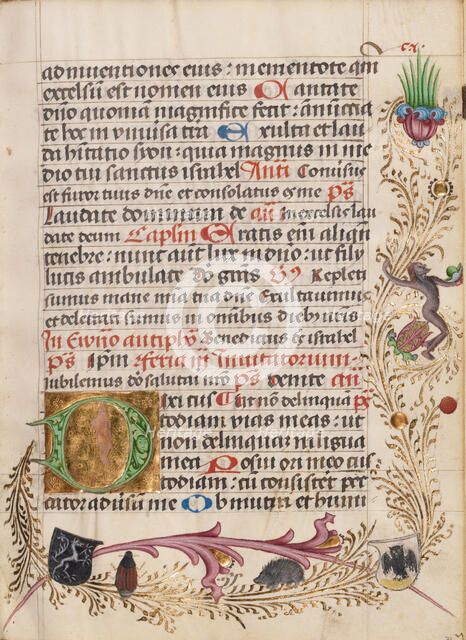 cx.
adinventiones eius : mementote qm
excelsu est nomen eius Cantate
dno quoniam magnifice fecit : annuncia
te hoc in universa tra Exulta et lau
da habitatio syon : quia magnus in me
dio tui sanctus israhel Anti Conversus
est furor tuus dne et consolatus es me Ps
Laudate dominum de an In excelsis lau
date deum Caplm Eratis em aliqn
tenebre : nunc aut lux in dno : ut filij
lucis ambulate Deo gras Repleti
sumus mane mia tua dne Exultavimus
et delectati sumus in omnibus diebus nris
In Ewangelio antiph Benedictus deus israhel
Ps feria Invitatorium
Jubilemus deo salutari nro Ps Venite an
Dixi cus Ut non delinqua ps
todiam vias meas : ut
non delinquam in lingua
mea Posui ori meo cus
todiam : cu consistet pec
cator adversu me Obmutui et humi